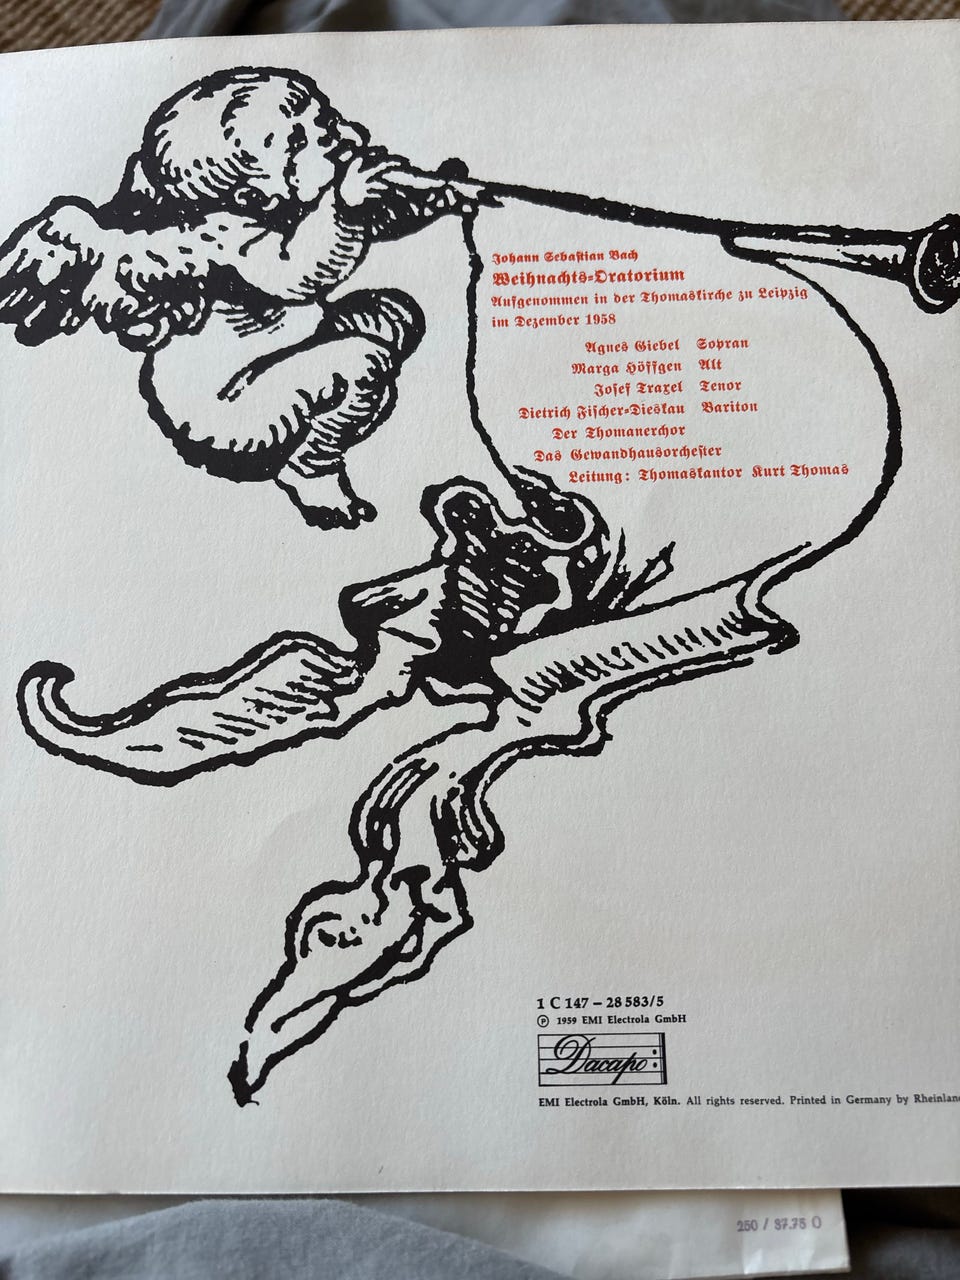 Johann Sebastian Bach
Weihnachts-Oratorium
Aufgenommen in der Thomaskirche zu Leipzig
im Dezember 1958
Agnes Giebel Sopran
Marga Höffgen Alt
Josef Traxel Tenor
Dietrich Fischer-Dieskau Bariton
Der Thomanerchor
Das Gewandhausorchester
Leitung: Thomaskantor Kurt Thomas
1 C 147 – 28 583/5
Ⓟ 1959 EMI Electrola GmbH
Dacapo
EMI Electrola GmbH, Köln. All rights reserved. Printed in Germany by Rheinland
250 / 37.75 O